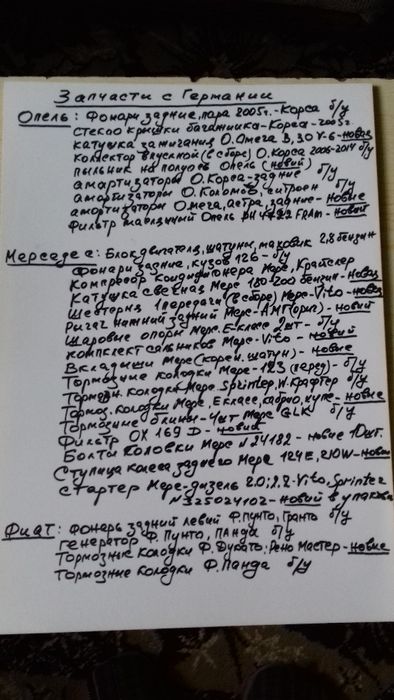 Запчасти с Германии
Опель: Фонари задние, пара 2005г.-Корса б/у
стекло крышки багажника-Корса-2005г.
катушка зажигания О.Омега В, 30 V-6-новая
коллектор впускной (в сборе) О.Корса 2006-2014 б/у
пыльник на полуось Опель (новый)
амортизаторы О.Корса-задние б/у
амортизаторы О.Комбо, ситроен б/у
амортизаторы О.мега, астра, задние-новые
Фильтр маслянный Опель PH 4722 FRAM-новый
Мерседеc: Блок двигателя, шатуны, маховик 2,8 бензин
Фонари задние, кузов 126-б/у
Компресор кондиционера Мерс, Крайслер
Катушка свечная Мерс 180-200 бензин-новая
Шестерня 1 передачи (в сборе) Мерс-Vito-новая
Рычаг нижний задний Мерс-АМГ(ориг)-новый
Шаровые опоры Мерс. Е-класс 2шт-б/у
комплект сальников Мерс-Vito-новый
Вкладыши Мерс (корен. шатун)-новые
Тормозные колодки Мерс-123 (перед)-б/у
Тормозн. колодки Мерс Sprinter, W.Крафтер б/у
Тормоз. колодки Мерс. Е класс, кабрио, купе-новые
Тормозные блины-4шт Мерс GLK б/у
Фильтр OX 169 D-новый
Болты головки Мерс N 34182-новые 10шт.
Ступица колеса заднего Мерс 124E, 210W-новая
Стартер Мерс-дизель 2.0; 2.2-Vito, Sprinter
N 325024102-новый в упаковке
Фиат: Фонарь задний левый Ф.Пунто, Гранто б/у
генератор Ф. Пунто, Панда б/у
Тормозные колодки Ф. Дукато; Рено Мастер-новые
Тормозные колодки Ф. Панда б/у